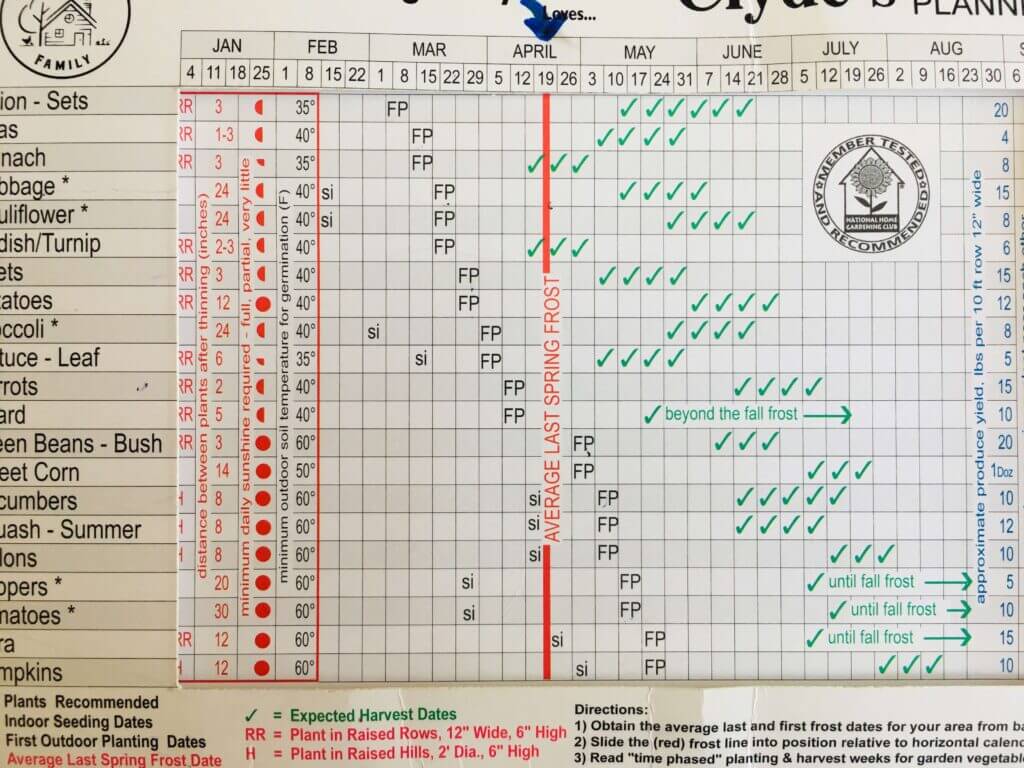 FAMILY
Loves...
Clyde's PLANN
JAN FEB MAR APRIL MAY JUNE JULY AUG S
4 11 18 25 1 8 15 22 1 8 15 22 29 5 12 19 26 3 10 17 24 31 7 14 21 28 5 12 19 26 2 9 16 23 30 6
ion - Sets RR 3 35° FP ✓✓✓✓✓✓ 20
as RR 1-3 40° FP ✓✓✓✓ 4
nach RR 3 35° FP ✓✓✓ 8
bbage * 24 40° si FP ✓✓✓✓ 15
uliflower * 24 40° si FP ✓✓✓✓ 8
dish/Turnip RR 2-3 40° FP ✓✓✓ 6
ets RR 3 40° FP ✓✓✓✓ 15
tatoes RR 12 40° FP ✓✓✓✓ 12
occoli * 24 40° si FP ✓✓✓✓ 8
tuce - Leaf RR 6 35° si FP ✓✓✓✓ 5
rrots RR 2 40° FP ✓✓✓✓ 15
ard RR 5 40° FP ✓ beyond the fall frost → 10
een Beans - Bush RR 3 60° FP ✓✓✓ 20
eet Corn 14 50° FP ✓✓✓ 1Doz
cumbers H 8 60° si FP ✓✓✓✓✓ 10
uash - Summer H 8 60° si FP ✓✓✓✓ 12
lons H 8 60° si FP ✓✓✓ 10
ppers * 20 60° si FP ✓ until fall frost → 5
matoes * 30 60° si FP ✓ until fall frost → 10
ra RR 12 60° si FP ✓ until fall frost → 15
mpkins H 12 60° si FP ✓✓✓ 10
distance between plants after thinning (inches)
minimum daily sunshine required - full, partial, very little
minimum outdoor soil temperature for germination (F)
AVERAGE LAST SPRING FROST
MEMBER TESTED
NATIONAL HOME
GARDENING CLUB
AND RECOMMENDED
approximate produce yield, lbs per 10 ft row 12" wide
Plants Recommended
Indoor Seeding Dates
First Outdoor Planting Dates
Average Last Spring Frost Date
✓ = Expected Harvest Dates
RR = Plant in Raised Rows, 12" Wide, 6" High
H = Plant in Raised Hills, 2' Dia., 6" High
Directions:
1) Obtain the average last and first frost dates for your area from ba
2) Slide the (red) frost line into position relative to horizontal calend
3) Read "time phased" planting & harvest weeks for garden vegetabl